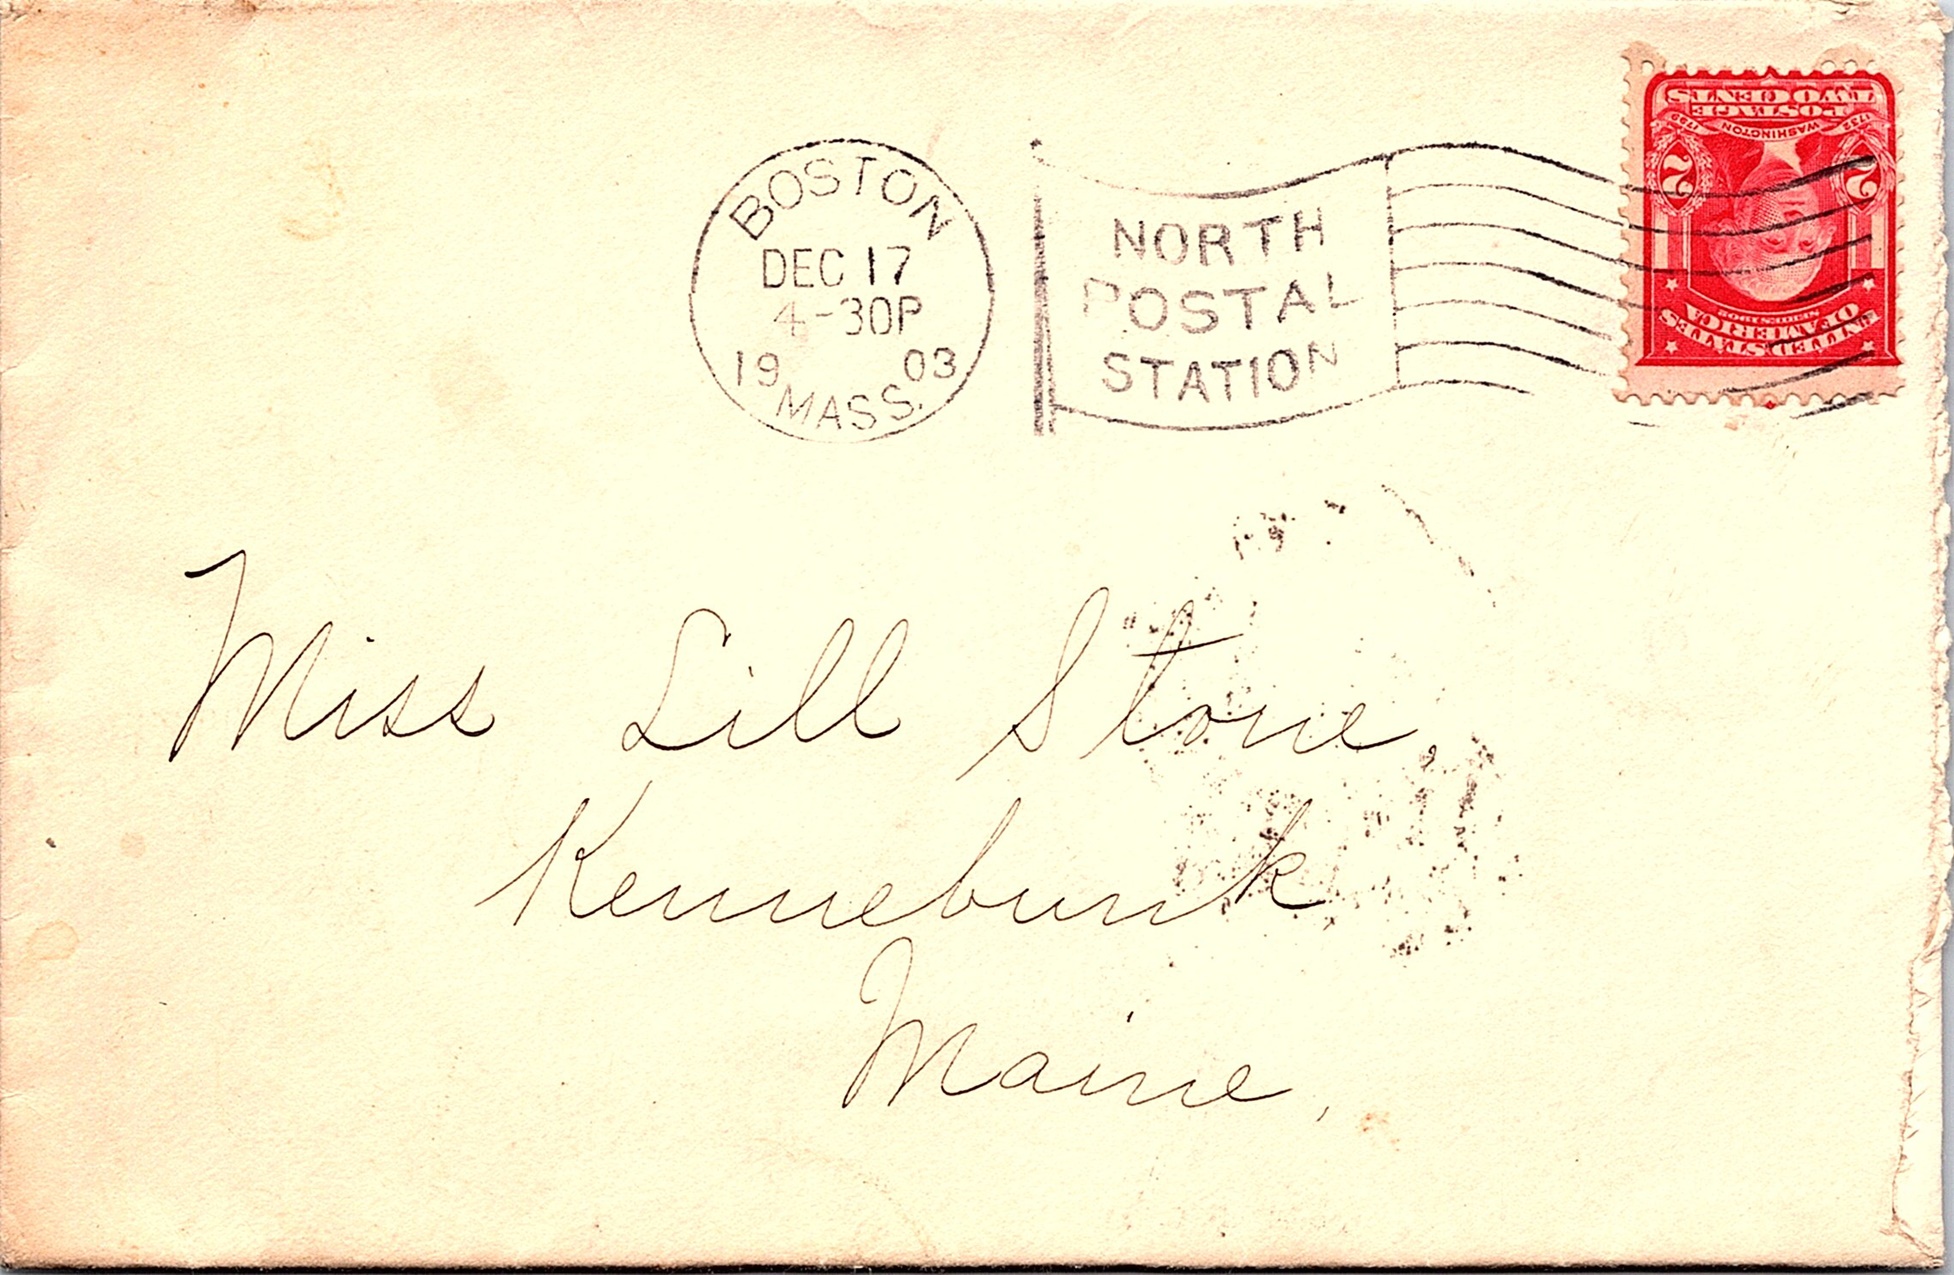 BOSTON
DEC 17
4-30P
19 03
MASS.
NORTH
POSTAL
STATION
UNITED STATES
OF AMERICA
SERIES 1902
2 2
1732 WASHINGTON 1799
POSTAGE
TWO CENTS
Miss Lill Stone,
Kennebunk
Maine,